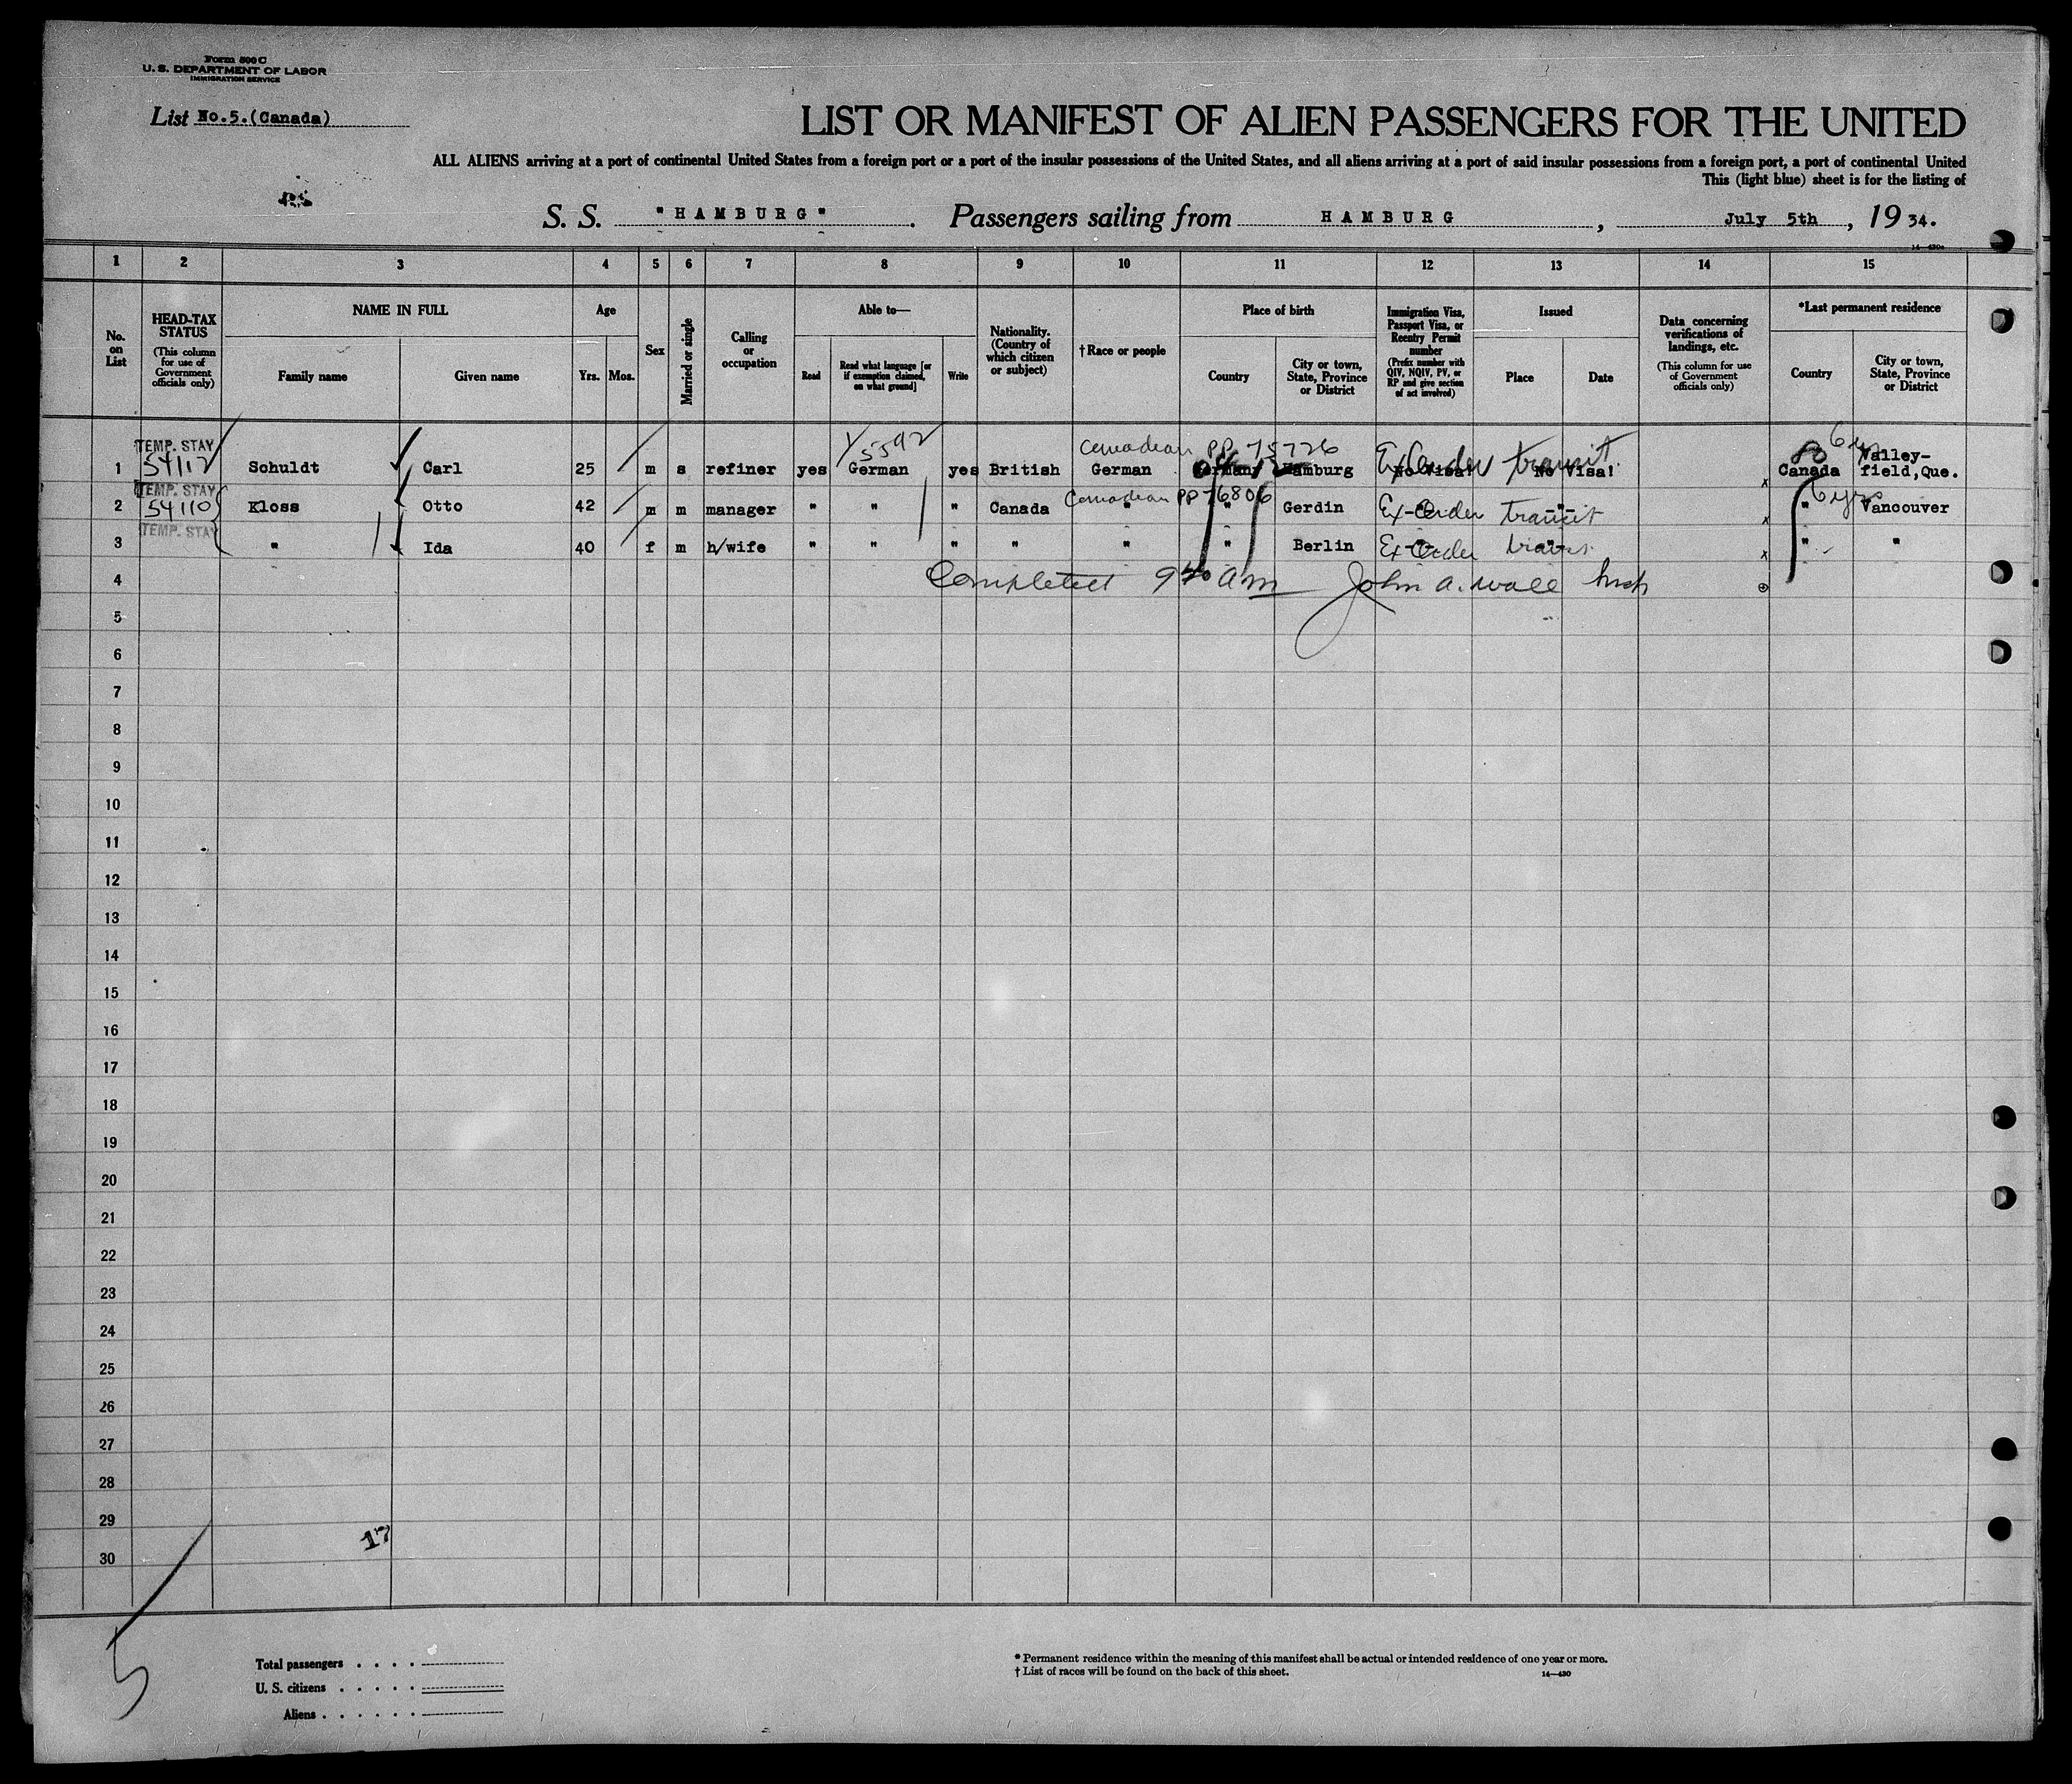 Form 500 C
U. S. DEPARTMENT OF LABOR
IMMIGRATION SERVICE
List No.5.(Canada)
LIST OR MANIFEST OF ALIEN PASSENGERS FOR THE UNITED
ALL ALIENS arriving at a port of continental United States from a foreign port or a port of the insular possessions of the United States, and all aliens arriving at a port of said insular possessions from a foreign port, a port of continental United
This (light blue) sheet is for the listing of
S. S. "HAMBURG". Passengers sailing from HAMBURG, July 5th, 19 34.
1 2 3 4 5 6 7 8 9 10 11 12 13 14 15
No. on List
HEAD-TAX STATUS (This column for use of Government officials only)
NAME IN FULL
Family name
Given name
Age
Yrs. Mos.
Sex
Married or single
Calling or occupation
Able to—
Read
Read what language [or if exemption claimed, on what ground]
Write
Nationality. (Country of which citizen or subject)
†Race or people
Place of birth
Country
City or town, State, Province or District
Immigration Visa, Passport Visa, or Reentry Permit number (Prefix number with QIV, NQIV, PV, or RP and give section of act involved)
Issued
Place
Date
Data concerning verifications of landings, etc. (This column for use of Government officials only)
*Last permanent residence
Country
City or town, State, Province or District
TEMP. STAY 5592 Canadian PP 75726 6 yrs
1 54112 Schuldt Carl 25 m s refiner yes German yes British German Germany Hamburg No Visa! Ex-Order transit No Visa! Canada Valley-field, Que.
TEMP. STAY Canadian PP 76806 6 yrs
2 54110 Kloss Otto 42 m m manager " " " Canada " " Gerdin Ex-Order transit " Vancouver
TEMP. STAY
3 " Ida 40 f m h/wife " " " " " " Berlin Ex-Order trans. " "
4 Completed 9 30 am John A. Wall Insp
5
6
7
8
9
10
11
12
13
14
15
16
17
18
19
20
21
22
23
24
25
26
27
28
29
17
30
5
Total passengers . . . .
U. S. citizens . . . . .
Aliens . . . . . .
* Permanent residence within the meaning of this manifest shall be actual or intended residence of one year or more.
† List of races will be found on the back of this sheet.
14—430